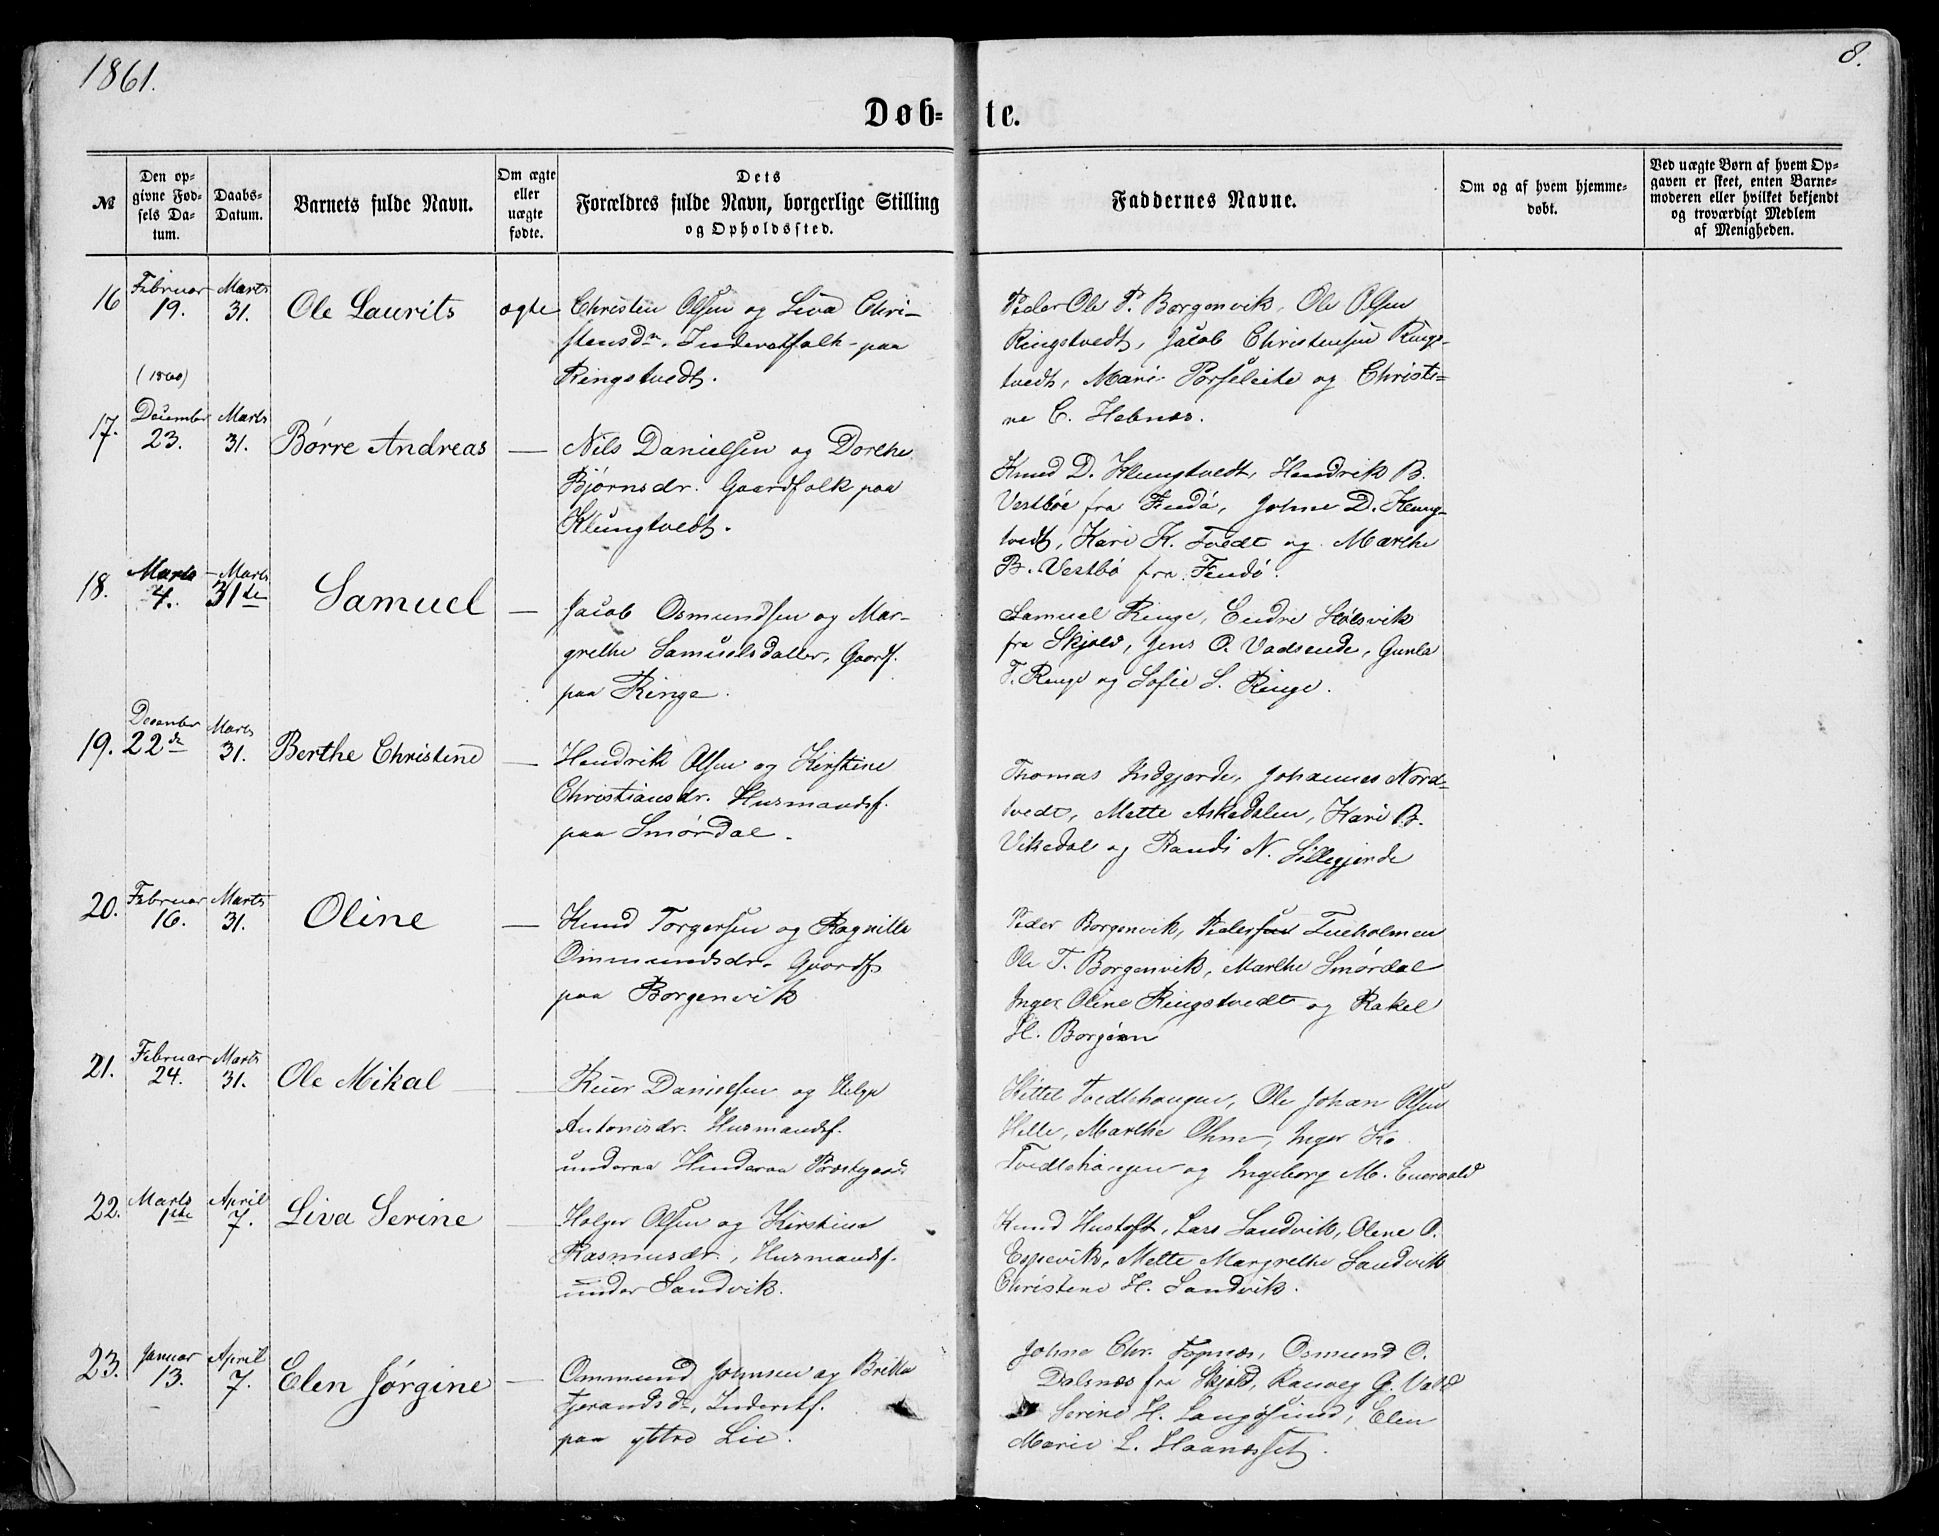 1861.
8.
Døb=te.
№
Den op-
givne Fød-
sels Da-
tum.
Daabs-
Datum.
Barnets fulde Navn.
Om ægte
eller
uægte
fødte.
Dets
Forældres fulde Navn, borgerlige Stilling
og Opholdssted.
Faddernes Navne.
Om og af hvem hjemme-
døbt.
Ved uægte Børn af hvem Op-
gaven er skeet, enten Barne-
moderen eller hvilket bekjendt
og troværdigt Medlem
af Menigheden.
16
Februar
19.
Marts
31.
Ole Laurits
ægte
Christen Olsen og Liva Chri-
stensdr. Inderstfolk paa
Ringstvedt.
Peder Ole P. Borgenvik, Ole Olsen
Ringstvedt, Jacob Christensen Rings-
tvedt, Mari Porseleite og Christi=
ne C. Hebnes.
17.
(1860)
December
23.
Marts
31.
Børre Andreas
—
Nils Danielsen og Dorthe
Bjørnsdr. Gaardfolk paa
Klungtvedt.
Knud D. Klungtvedt, Hendrik B.
Vestbøe fra Findö, Johne D. Klung-
tvedt, Kari K. Tvedt og Marthe
B. Vestbø fra Fendö.
18.
Marts
4.
Marts
31te
Samuel
—
Jacob Osmundsen og Mar-
grethe Samuelsdatter, Gaardf.
paa Ringe.
Samuel Ringe, Endre Stølsvik
fra Skjold, Jens O. Vadsende, Gunla
T. Ringe og Sofie S. Ringe.
19.
December
22de
Marts
31.
Berthe Christine
—
Hendrik Olsen og Kirstine
Christiansdr. Husmandsf.
paa Smørdal.
Thomas Indgjerde, Johannes Nord-
tvedt, Mette Askedalen, Kari B.
Vikedal og Randi N. Lillegjerde
20.
Februar
16.
Marts
31.
Oline
—
Knud Torgersen og Ragnilla
Ommundsdr. Gaardf.
paa Borgenvik
Peder Borgenvik, Pedersen Tveholmen
Ole T. Borgenvik, Marthe Smørdal
Inger Oline Ringstvedt og Rakel
H. Borgöen
21.
Februar
24.
Marts
31.
Ole Mikal
—
Danielsen og Helga
Antonisdr. Husmandsf.
underaa Hinderaa Præstgaard
Kittel Tvedtehaugen, Ole Johan Olsen
Hille, Marthe Ohne, Inger K.
Tvedtehaugen og Ingeborg M.
22.
Marts
1ste
April
7.
Liva Serine
Holger Olsen og Kirstina
Rasmusdr., Husmandsf.
under Sandvik.
Knud Hustoft, Lars Sandvik, Olene O.
Espevik, Mette Margrethe Sandvik
Christene H. Sandvik.
23.
Januar
13.
April
7.
Elen Jørgine
—
Ommund Johnsen og Britta
Tjerandsdr, Inderstf.
paa yttre Lie.
Johne Chr. Fopnæs, Osmund O.
Dalsnæs fra Skjold, Ranveg G.
Serine H. Langøsund, Elen
Marie L. Haanæsset.